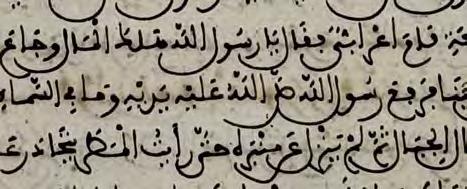 قام اعرابي فقال يا رسول الله هلك المال وجاع
لنا فرفع رسول الله صلى الله عليه يديه وما في السماء
الجبال ثم لم ينزل عن منبره حتى رأيت المطر يتحادر